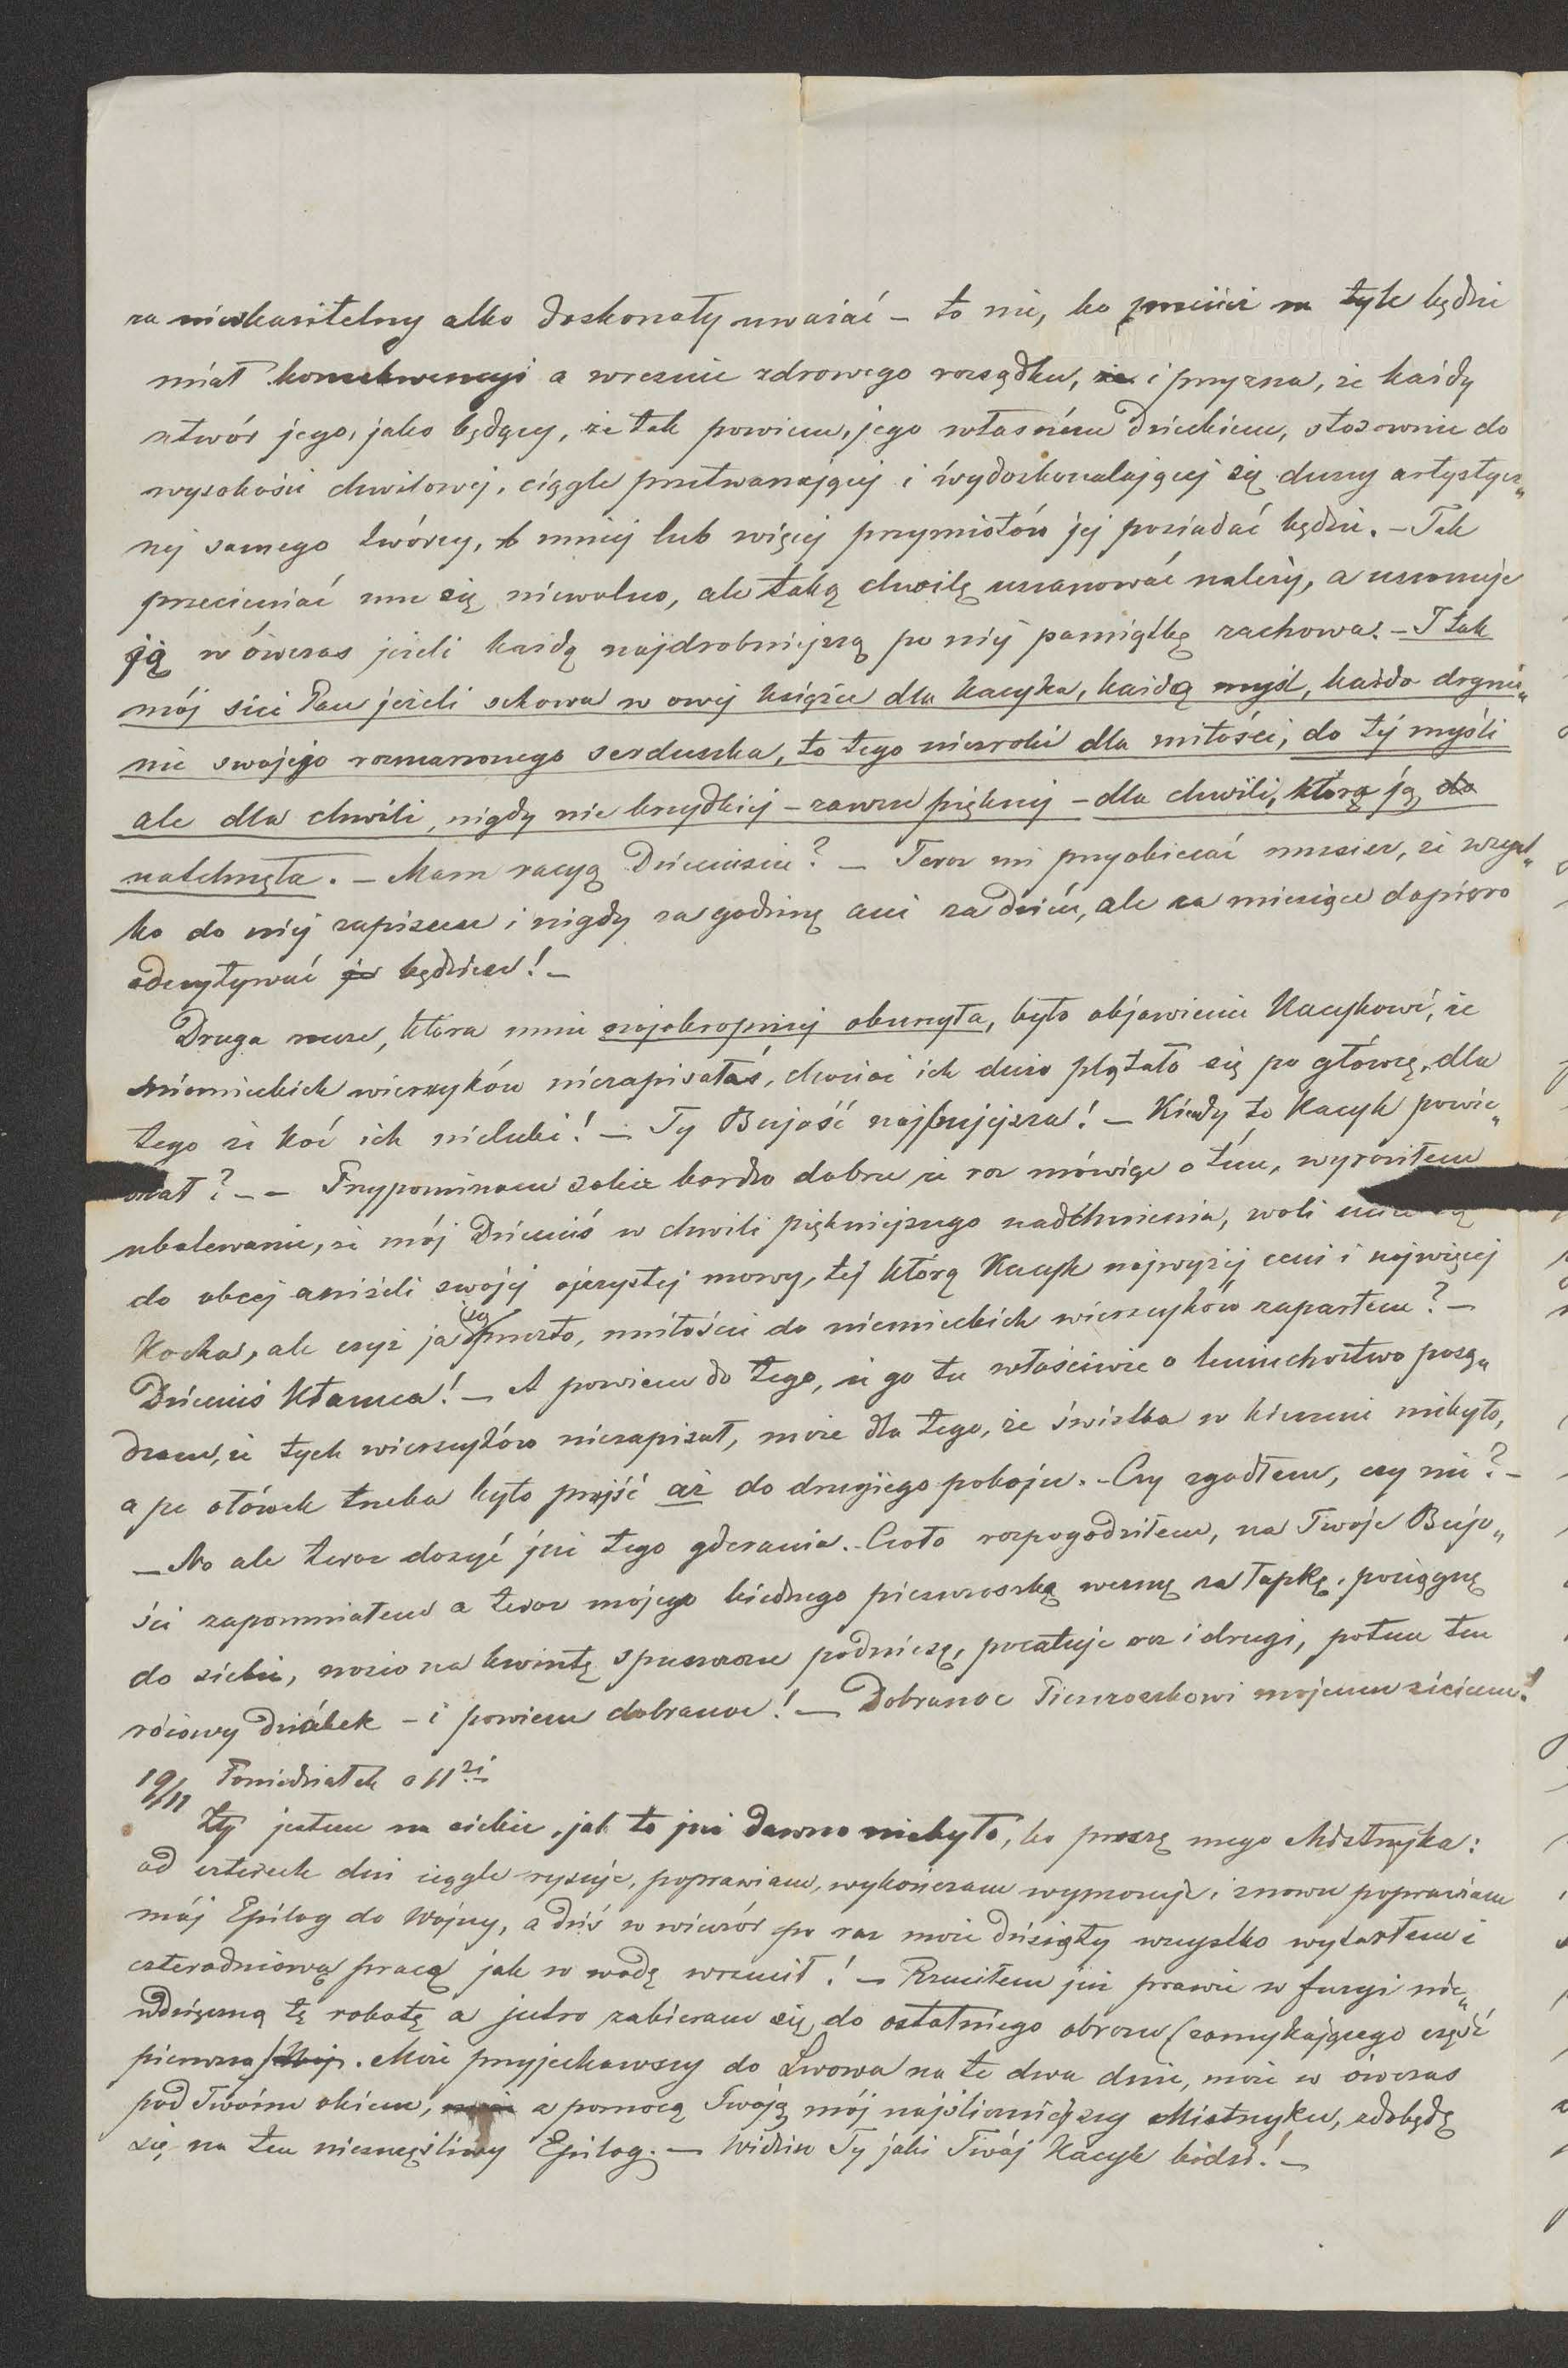 za nieskazitelny albo doskonały uważać – to nie, bo przecież na tyle będzie
miał konsekwencyi a wreszcie zdrowego rozsądku, że i przyzna, że każdy
utwór jego, jako będący, że tak powiem, jego własném dzieckiem, stosownie do
wysokości chwilowej, ciągle przetwarzającej i wydoskonalającej się duszy artystycz„
nej samego twórcy, mniej lub więcej przymiotów jej posiadać będzie. – Tak
przeceniać mu się niewolno, ale taką chwilę uszanować należy, a uszanuje
ją wówczas jeżeli każdą najdrobniejszą po niej pamiątkę zachowa. – I tak
mój sici Pan jeżeli schowa w owej książce dla Kacyka, każdą myśl, każde drgnie„
nie swojego rozmarzonego serduszka, to tego niezrobi dla miłości, do tej myśli
ale dla chwili, nigdy nie brzydkiej – zawsze pięknej – dla chwili, która ją do
natchnęła. – Mam racyą Dzieciusiu? – Teraz mi przyobiecać musisz, że wszyst„
ko do niej zapiszesz i nigdy za godzinę ani za dzień, ale za miesiące dopiero
odczytywać je będziesz! –
Druga rzecz, która mnie najokropniej oburzyła, było objawienie Kacykowi, że
niemieckich wierszyków niezapisałaś, chociaż ich dużo plątało się po główce, dla
tego że Koć ich nielubi! – Ty Bujość najbujejsza! – Kiedy to Kacyk powie„
dział? – – Przypominam sobie bardzo dobrze że raz mówiąc o tém, wyraziłem
ubolewanie, że mój Dzieciuś w chwili piękniejszego nadtchnienia, woli
do obcej aniżeli swojej ojczystej mowy, tej którą Kacyk najwyżej ceni i najwięcej
Kocha, ale czyż ja się przez to, miłości do niemieckich wierszyków zaparłem? –
Dzieciuś Kłamca! – A powiem do tego, że go tu właściwie o leniuchostwo posą„
dzam, że tych wierszyków niezapisał, może dla tego, że świstka w kieszeni niebyło,
a po ołówek trzeba było przejść aż do drugiego pokoju. – Czy zgadłem, czy nie? –
– No ale teraz dosyć już tego gderania. Czoło rozpogodziłem, na Twoje Bujo„
ści zapomniałem a teraz mojego biednego pieszczoszka wezmę za łapkę, pociągnę
do siebie, nosio na kwintę spuszczone podniesę, pocałuje raz i drugi, potem ten
różowy dzióbek – i powiem dobranoc! – Dobranoc Pieszczoszkowi mojemu siciemu!
19/11 Poniedziałek o 11ej
Zły jestem na siebie, jak to już dawno niebyło, bo proszę mego Mistrzyka:
od czterech dni ciągle rysuje, poprawiam, wykończam wymazuje i znowu poprawiam
mój Epilog do Wojny, a dziś w wieczór po raz może dziesiąty wszystko wytarłem i
czterodniową pracą jak w wodę wrzucił! – Rzuciłem już prawie w furyi nie„
wdzięczną tę robotę a jutro zabieram się do ostatniego obrazu (zamykającego część
pierwszą). Może przyjechawszy do Lwowa na te dwa dnie, może w ówczas
pod Twoim okiem, a pomocą Twoją mój najśliczniejszy Mistrzyku, zdobędę
się na ten nieszczęśliwy Epilog. – Widzisz Ty jaki Twój Kacyk bidsi! –